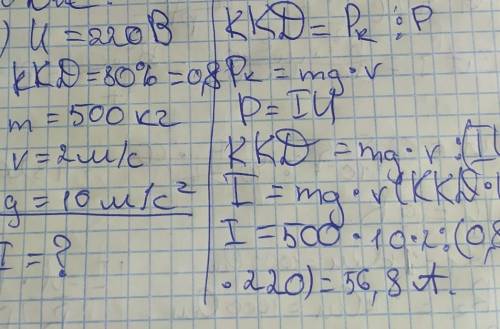 ) U = 220 В
ККД = 80% = 0,8
m = 500 кг
v = 2 м/с
g = 10 м/с²
I = ?
ККД = Pк : P
Pк = mg · v
P = IU
ККД = mg · v : (IU
I = mg · v (ККД ·
I = 500 · 10 · 2 : (0,8
· 220) = 56,8 А.